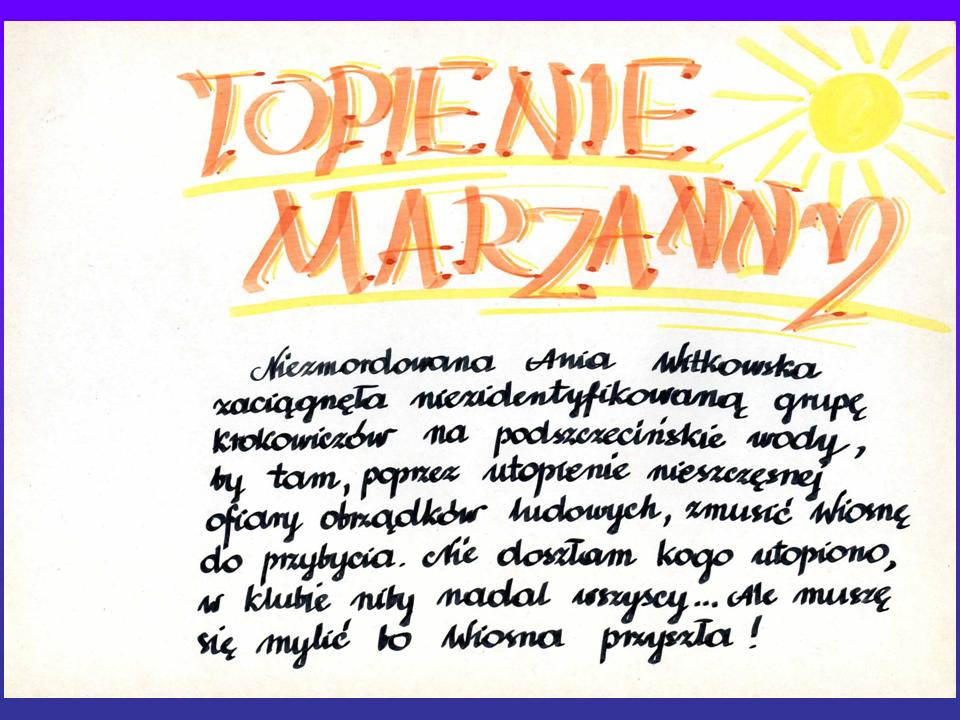 TOPIENIE
MARZANNY
Niezmordowana Ania Witkowska
zaciągnęła niezidentyfikowaną grupę
Krokowiczów na podszczecińskie wody,
by tam, poprzez utopienie nieszczęsnej
ofiary obrządków ludowych, zmusić Wiosnę
do przybycia. Nie doszłam kogo utopiono,
w klubie niby nadal wszyscy... Ale muszę
się mylić bo Wiosna przyszła!